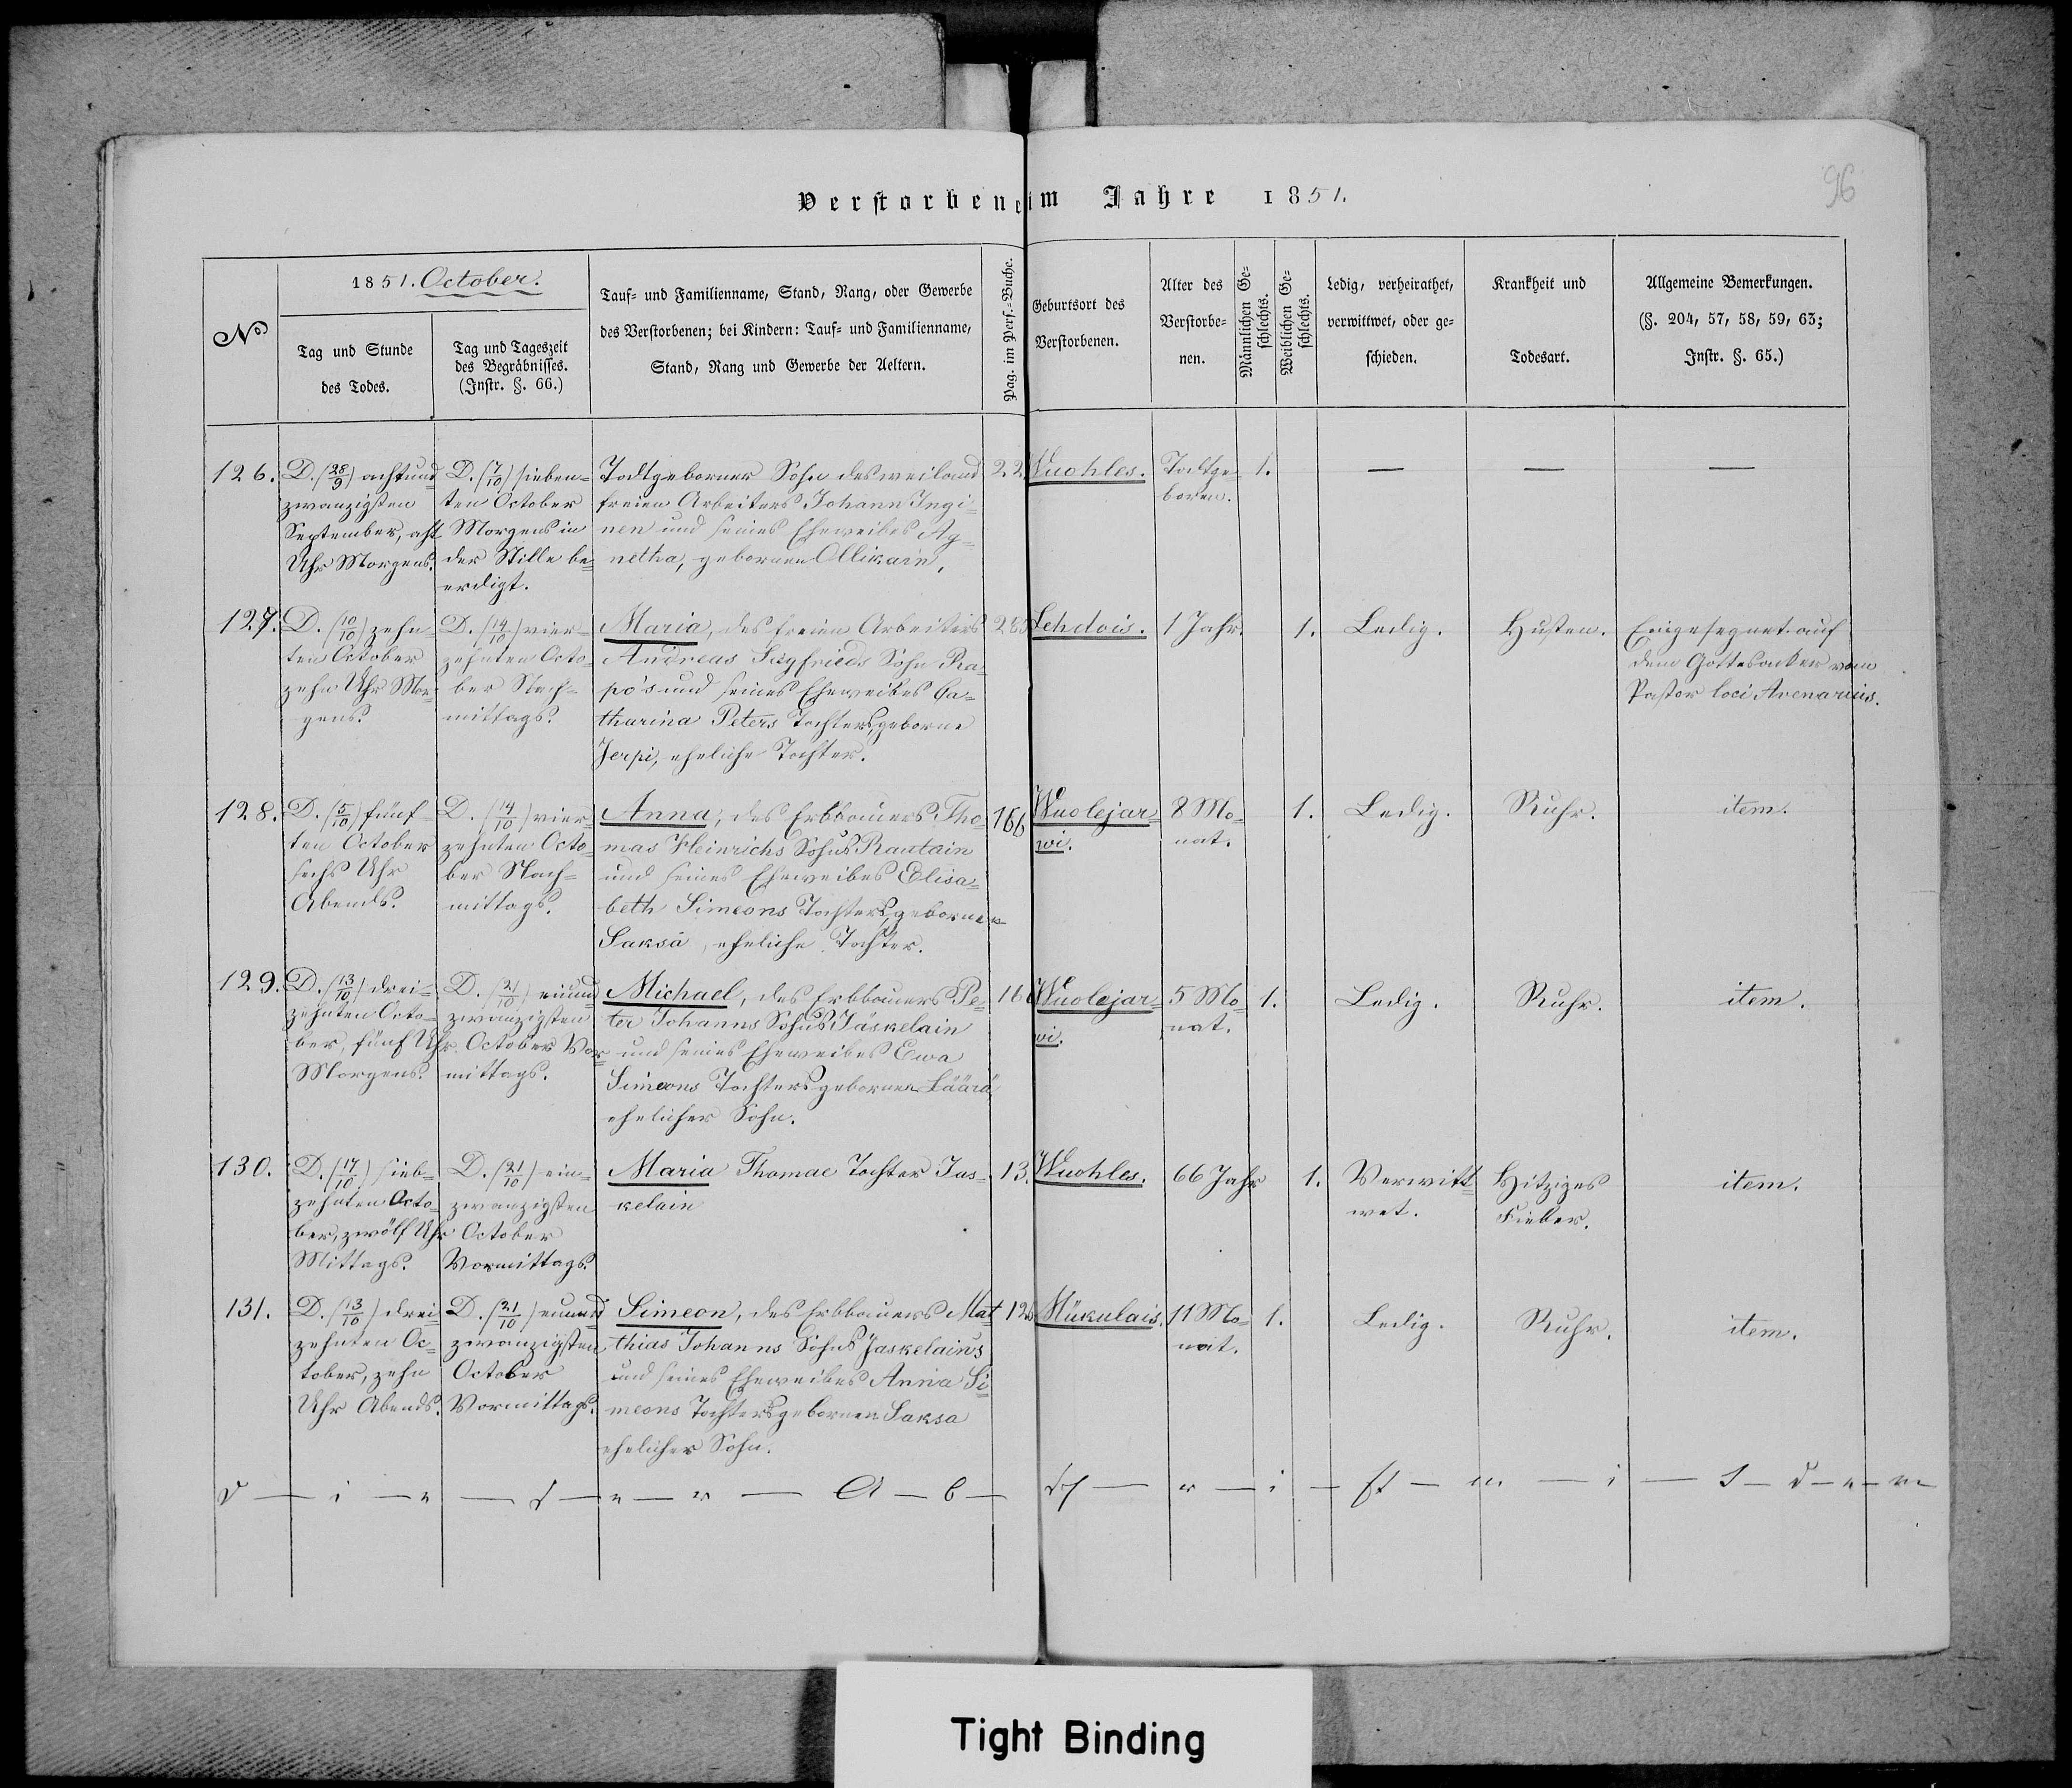 96
Verstorbene im Jahre 1851.
№
1851. October.
Tag und Stunde
des Todes.
Tag und Tageszeit
des Begräbnisses.
(Instr. §. 66.)
Tauf- und Familienname, Stand, Rang, oder Gewerbe
des Verstorbenen; bei Kindern: Tauf- und Familienname,
Stand, Rang und Gewerbe der Aeltern.
Pag. im Pers.-Buche.
Geburtsort des
Verstorbenen.
Alter des
Verstorbe-
nen.
Männlichen Ge-
schlechts.
Weiblichen Ge-
schlechts.
Ledig, verheirathet,
verwittwet, oder ge-
schieden.
Krankheit und
Todesart.
Allgemeine Bemerkungen.
(§. 204, 57, 58, 59, 63;
Instr. §. 65.)
126.
D. (28/9) achtund
zwanzigsten
September, acht
Uhr Morgens.
D. (7/10) sieben-
ten October
Morgens in
der Stille be-
erdigt.
Todtgeborner Sohn des weiland
freien Arbeiters Johann Ingi-
nen und seines Eheweibes Ag-
netha, gebornen Ollikain.
22
Wuohles.
Todtge-
boren.
1.
—
—
—
127.
D. (10/10) zehn-
ten October
zehn Uhr Mor-
gens.
D. (14/10) vier-
zehnten Octo-
ber Nach-
mittags.
Maria, des freien Arbeiters
Andreas Siegfrieds Sohn Ra-
po's und seines Eheweibes Ca-
tharina Peters Tochter, geborne
Jerpi, eheliche Tochter.
Lehdois.
1 Jahr.
1.
Ledig.
Husten.
Eingesegnet auf
dem Gottesacker vom
Pastor loci Avenarius.
128.
D. (5/10) fünf-
ten October
sechs Uhr
Abends.
D. (14/10) vier-
zehnten Octo-
ber Nach-
mittags.
Anna, des Erbbauers Tho-
mas Heinrichs Sohns Rautain
und seines Eheweibes Elisa-
beth Simeons Tochters, gebornen
Saksa, eheliche Tochter.
166
Wuolejar-
wi.
8 Mo-
nat.
1.
Ledig.
Ruhr.
item.
129.
D. (13/10) drei-
zehnten Octo-
ber, fünf Uhr
Morgens.
D. (21/10) einund
zwanzigsten
October Vor-
mittags.
Michael, des Erbbauers Pe-
ter Johanns Sohns Jäskelain
und seines Eheweibes Ewa
Simeons Tochters gebornen Läärä
ehelicher Sohn.
Wuolejar-
wi.
5 Mo-
nat.
1.
Ledig.
Ruhr.
item.
130.
D. (17/10) sieb-
zehnten Octo-
ber, zwölf Uhr
Mittags.
D. (21/10) ein-
zwanzigsten
October
Vormittags.
Maria Thomae Tochter Jas-
kelain
13.
Wuohles.
66 Jahr
1.
Verwitt-
wet.
Hitziges
Fieber.
item.
131.
D. (13/10) drei-
zehnten Oc-
tober, zehn
Uhr Abends.
D. (21/10) einund
zwanzigsten
October
Vormittags.
Simeon, des Erbbauers Mat-
thias Johanns Sohns Jaskelain's
und seines Eheweibes Anna Si-
meons Tochters gebornen Saksa
ehelicher Sohn.
Mükulais.
11 Mo-
nat.
1.
Ledig.
Ruhr.
item.
D — i — e — s — e — r — A — b — sch — r — i — ft — m — i — t — d — e — m
Tight Binding